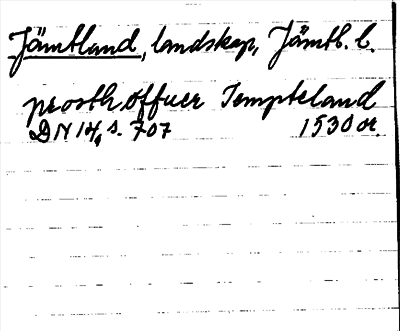 Jämtland, landskap, Jämtl. l.
prosth offuer Jempteland
DN 14, s. 707 1530 or.